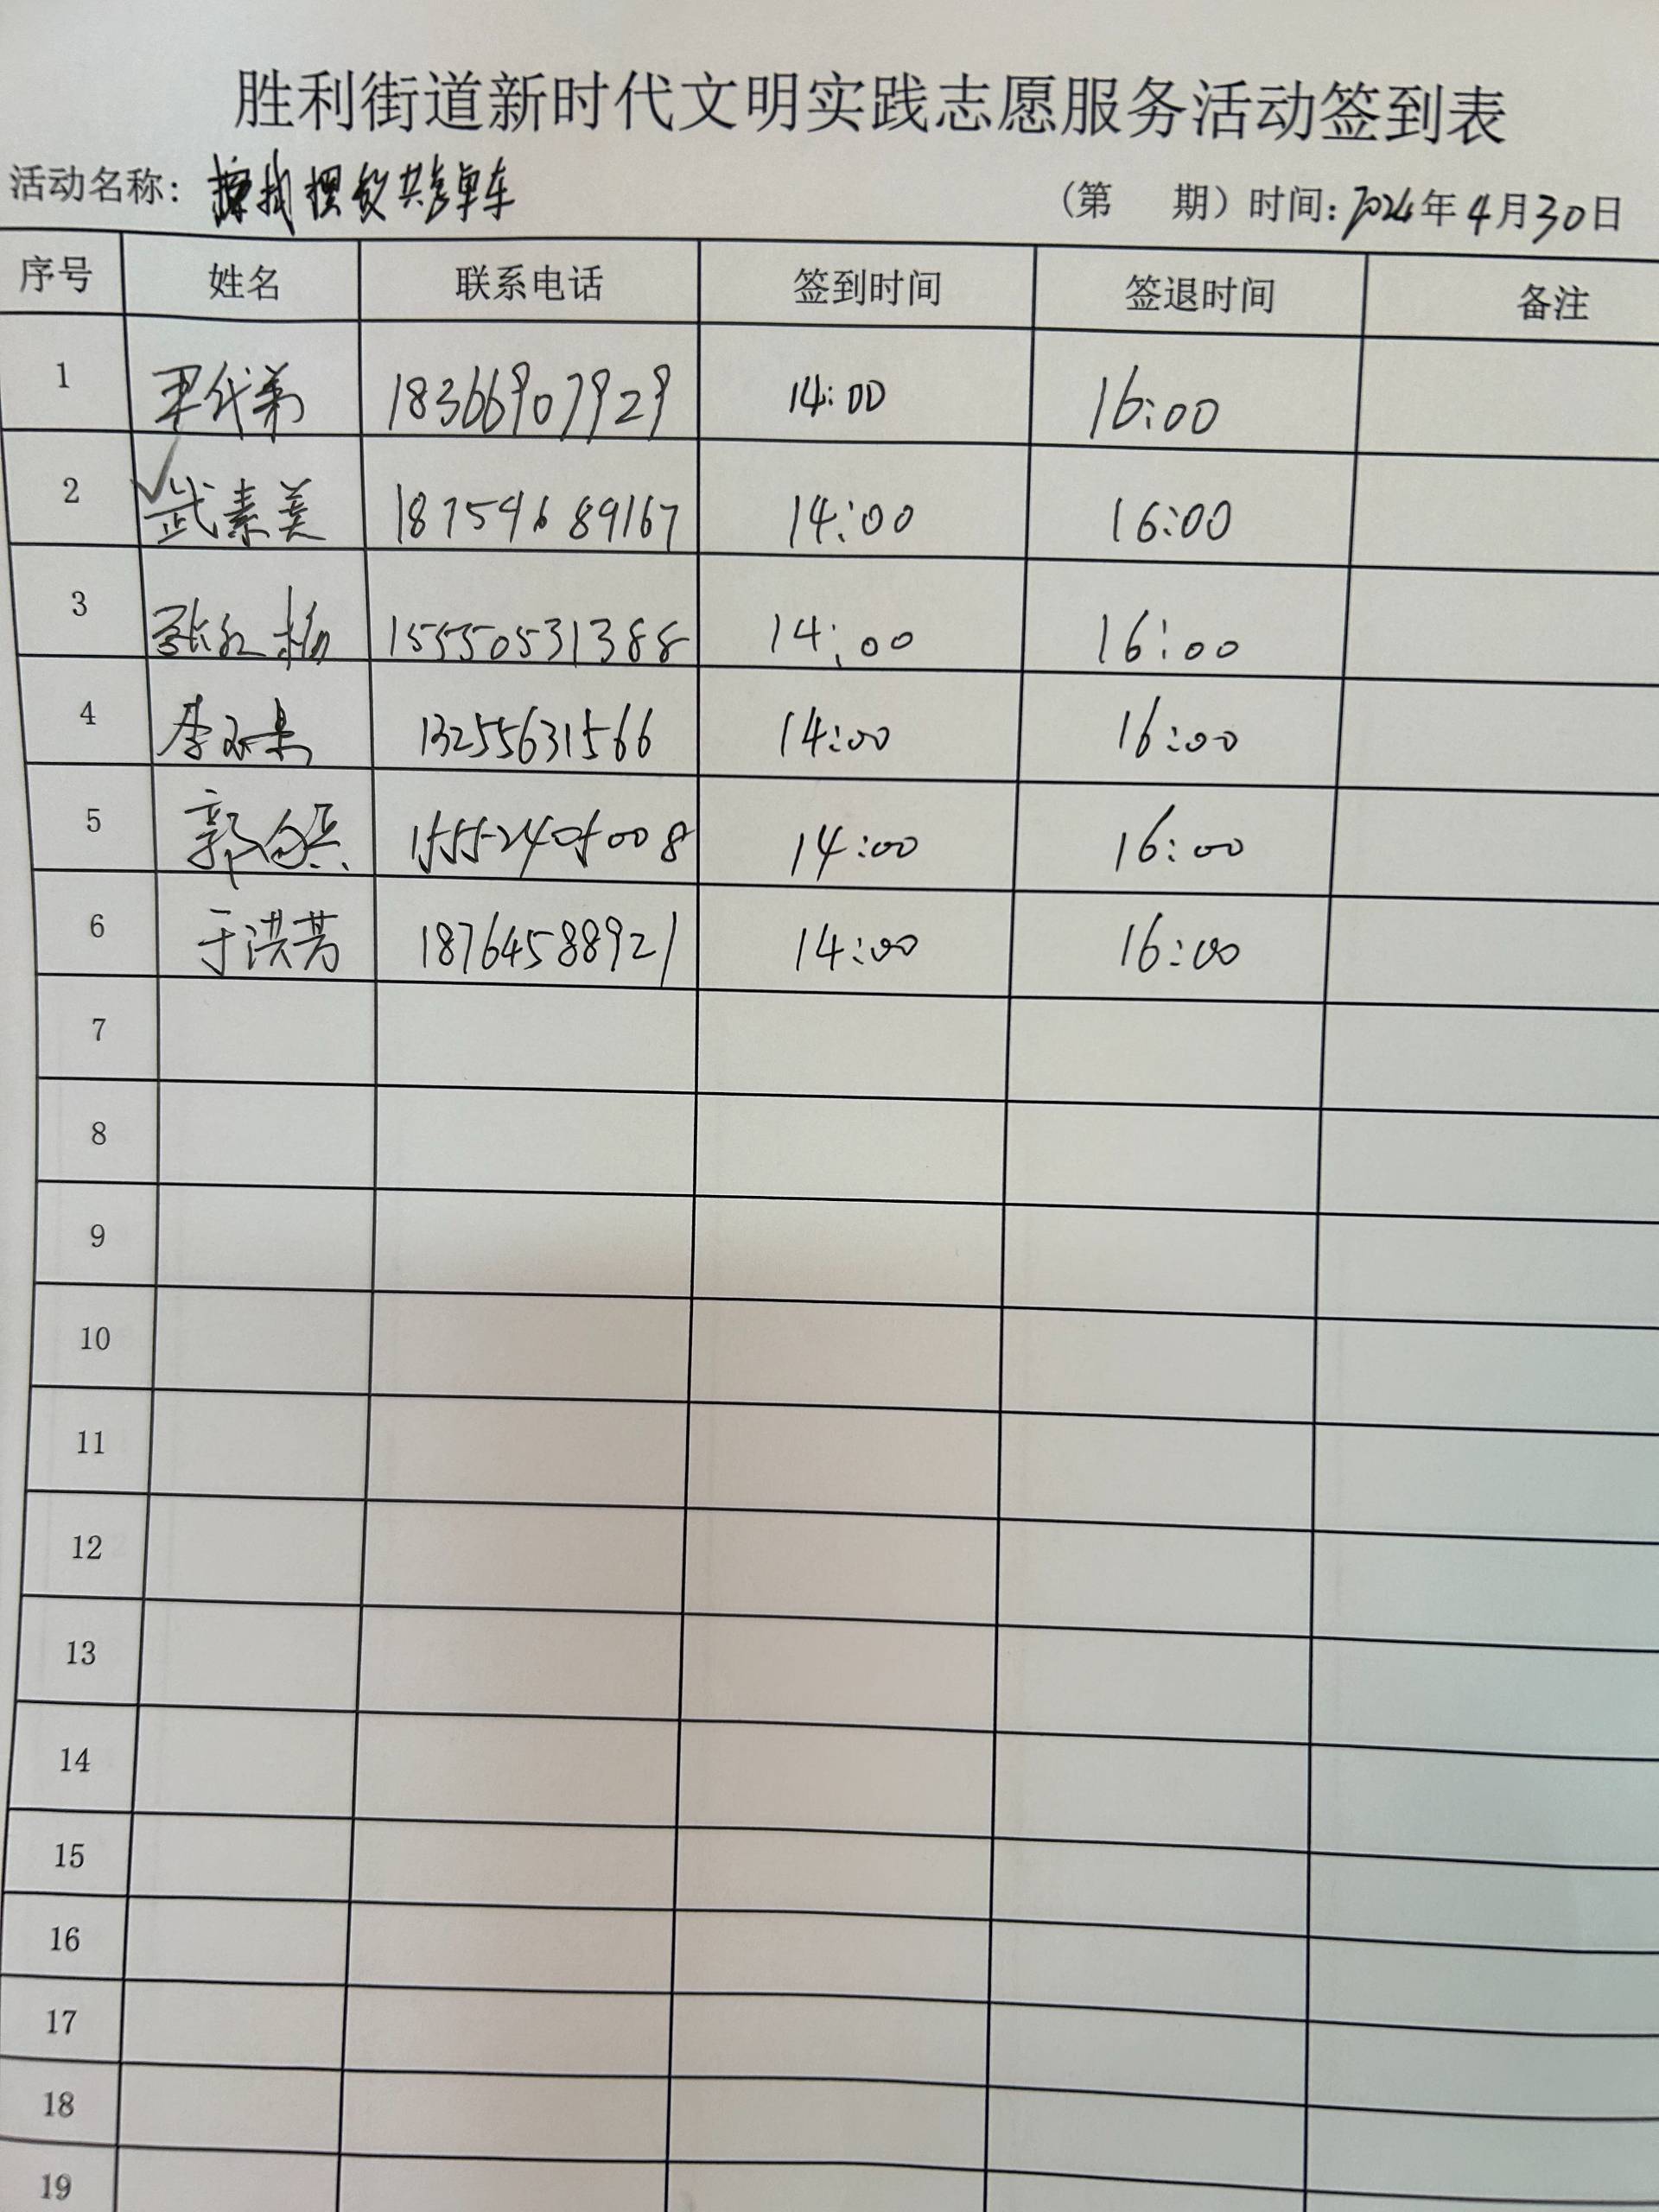 胜利街道新时代文明实践志愿服务活动签到表
活动名称: 摆放共享单车 (第 期) 时间: 2024年4月30日
序号 姓名 联系电话 签到时间 签退时间 备注
1 18366907929 14:00 16:00
2 武素美 18754689167 14:00 16:00
3 张红梅 15550531388 14:00 16:00
4 李 13255631566 14:00 16:00
5 郭 15552405008 14:00 16:00
6 于洪芳 18764588921 14:00 16:00
7
8
9
10
11
12
13
14
15
16
17
18
19